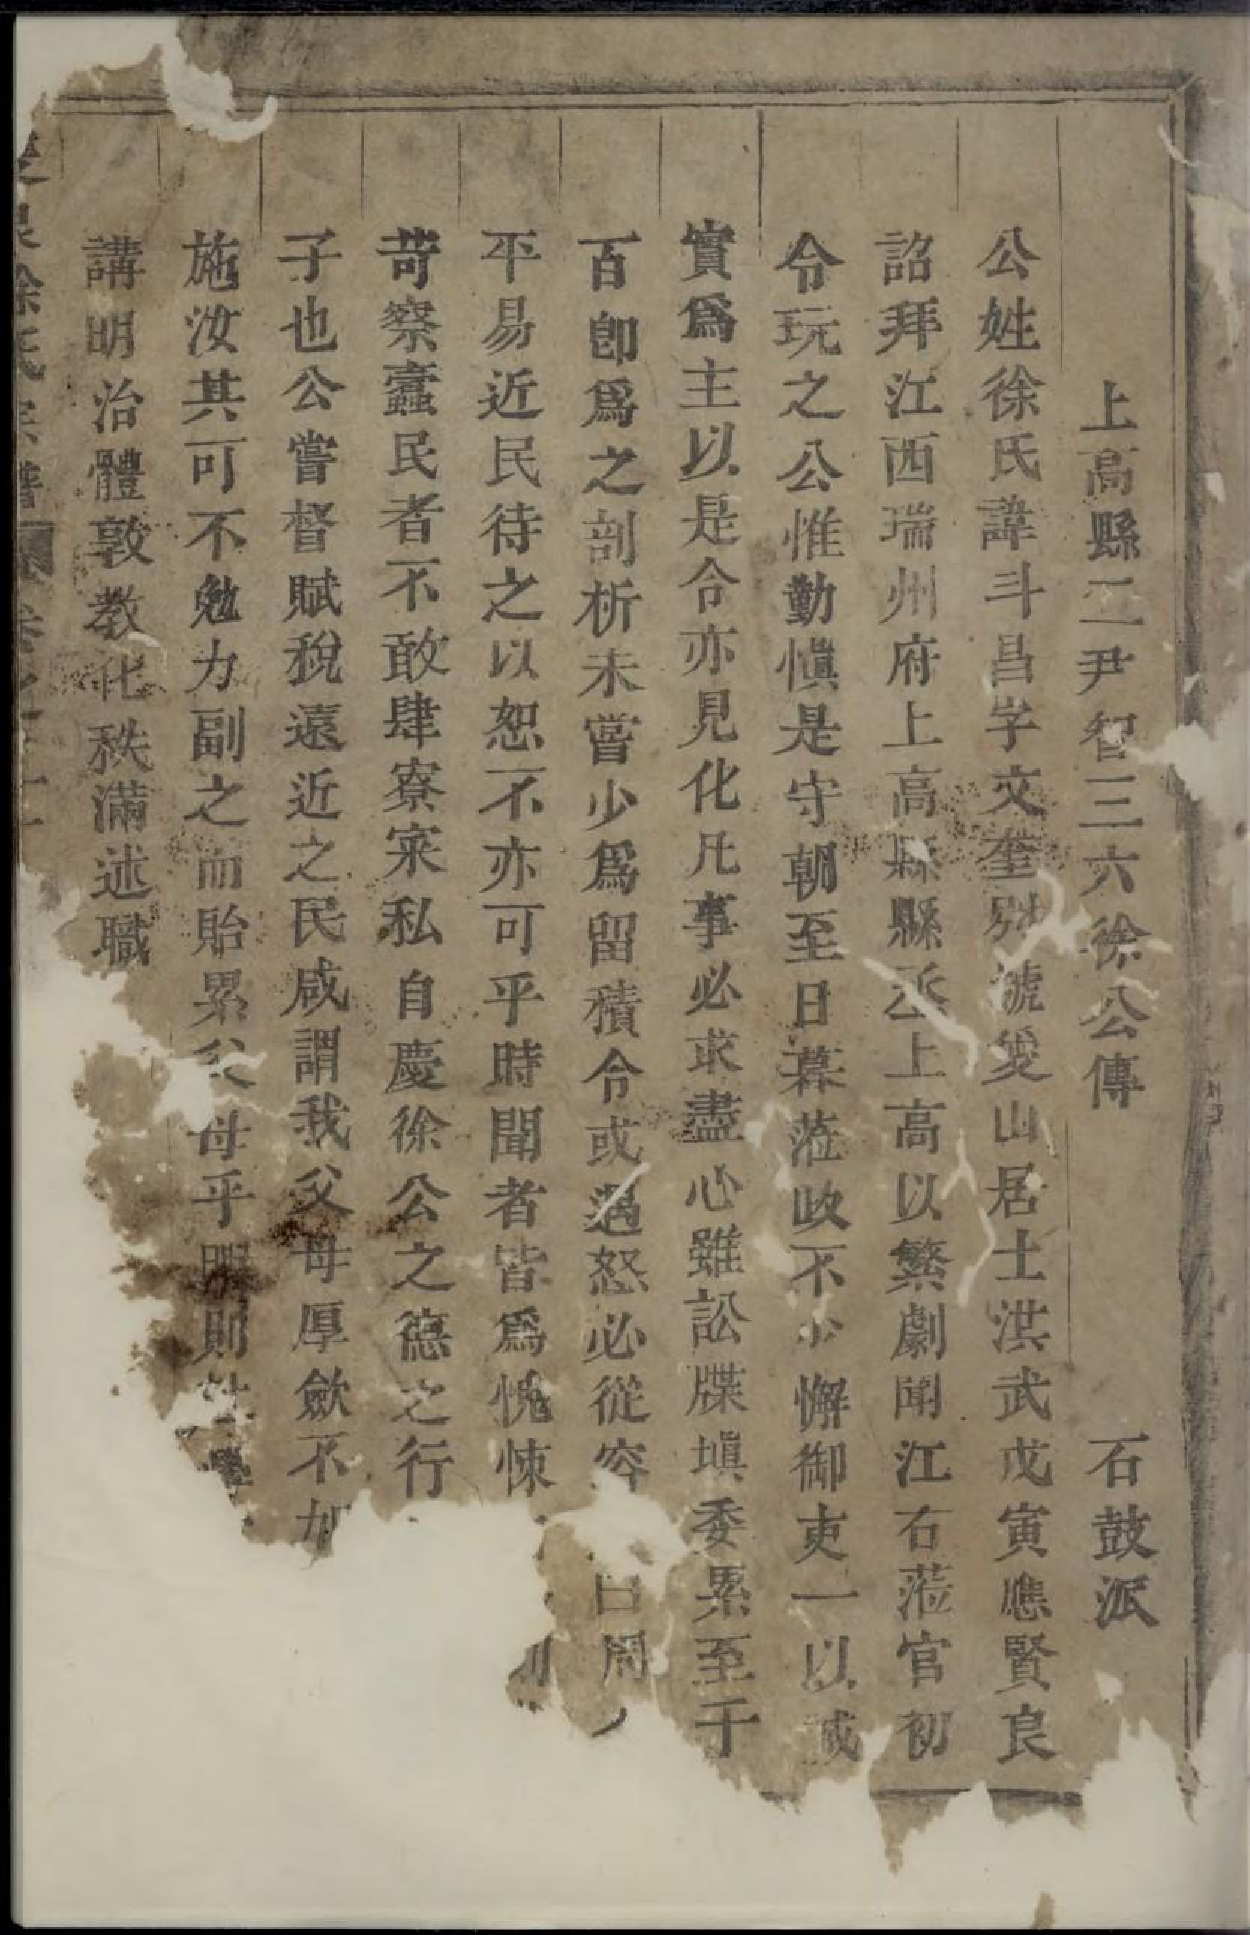 上高縣二尹智三六徐公傳 石鼓派
公姓徐氏諱斗昌字文奎别號愛山居士洪武戊寅應賢良
詔拜江西瑞州府上高縣縣丞上高以繁劇聞江右蒞官初
令玩之公惟勤慎是守朝至日暮蒞政不少懈御吏一以誠
實爲主以是令亦見化凡事必求盡心雖訟牒塡委累至于
百卽爲之剖析未嘗少爲留積令或遇怒必從容 曰周
平易近民待之以恕不亦可乎時聞者皆爲愧悚
苛察蠹民者不敢肆寮寀私自慶徐公之德之行
子也公嘗督賦稅遠近之民咸謂我父母厚歛不加
施汝其可不勉力副之而貽累父母乎 則
講明治體敦教化秩滿述職
徐氏宗譜 卷之